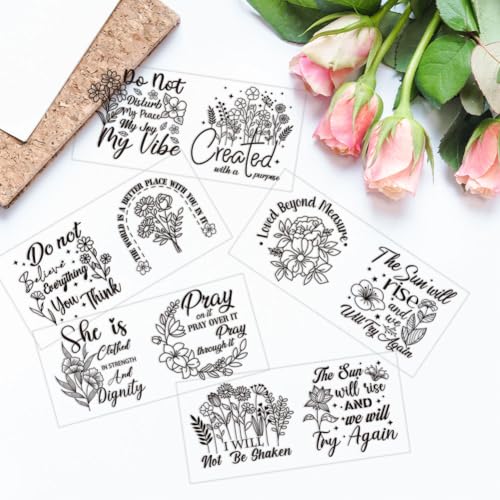 Do Not
Disturb
My Peace
My Joy
My Vibe
Created
with a purpose
Do not
Believe
Everything
You Think
THE WORLD IS A BETTER PLACE WITH YOU IN IT
Loved Beyond Measure
The Sun will
rise
and
we
Will Try Again
She is
Clothed
IN STRENGTH
And
Dignity
Pray
on it
PRAY OVER IT
Pray
through it
I WILL
Not Be Shaken
The Sun
will rise
AND
we will
Try Again